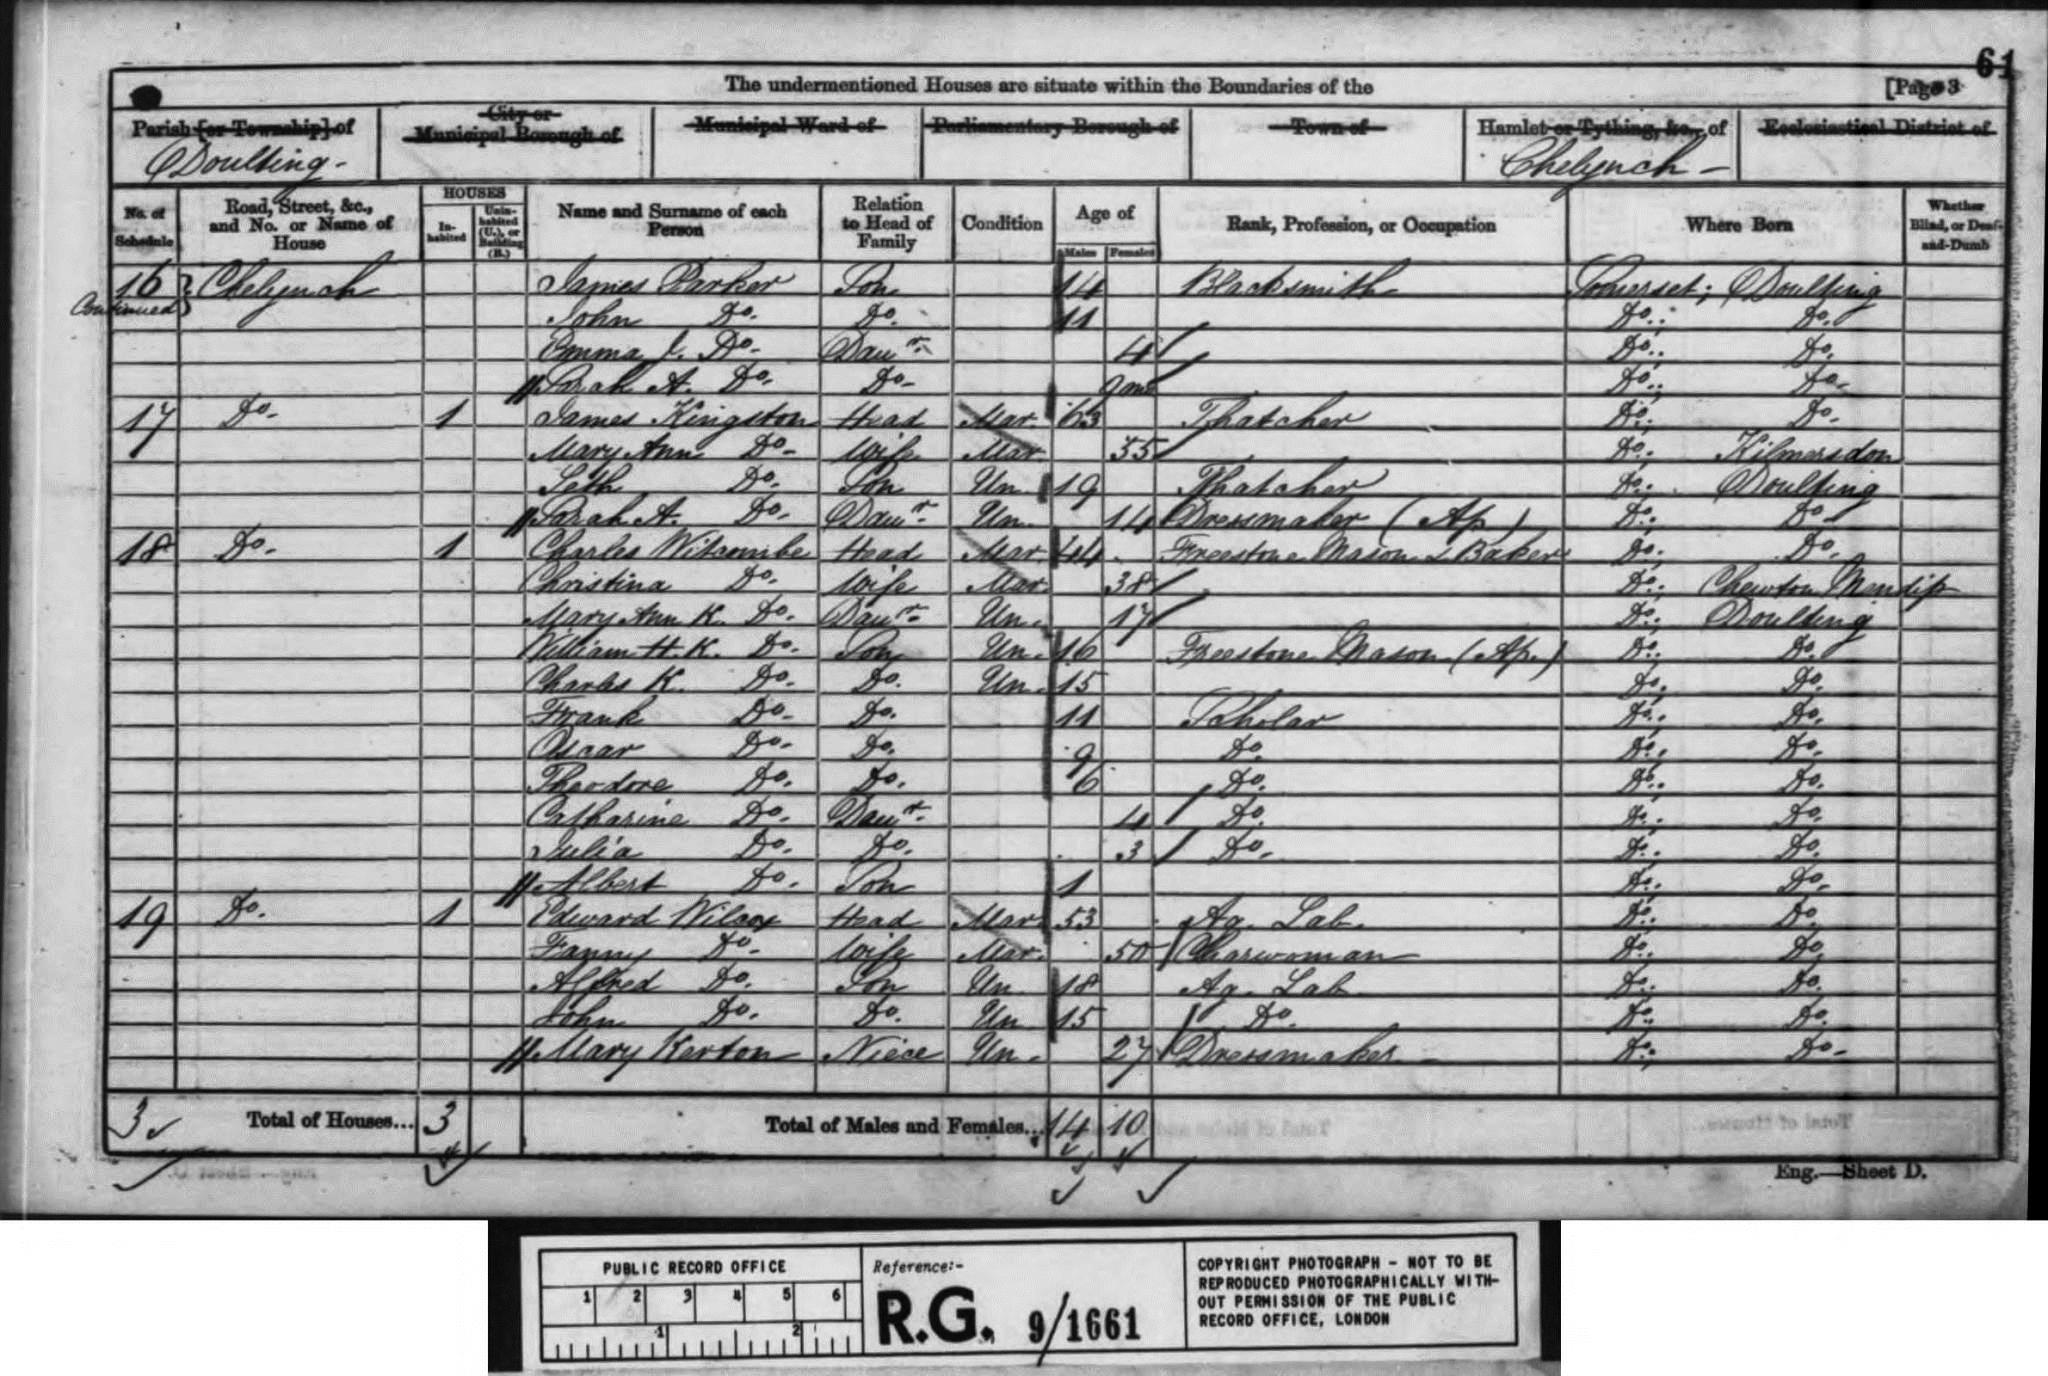 61
The undermentioned Houses are situate within the Boundaries of the [Page 3
Parish [or Township] of Doulting - City or Municipal Borough of Municipal Ward of Parliamentary Borough of Town of Hamlet or Tything, &c., of Chelynch - Ecclesiastical District of
No. of Schedule Road, Street, &c., and No. or Name of House HOUSES Inhabited Uninhabited (U.), or Building (B.) Name and Surname of each Person Relation to Head of Family Condition Age of Males Females Rank, Profession, or Occupation Where Born Whether Blind, or Deaf-and-Dumb
16 Continued Chelynch James Parker Son 14 Blacksmith Somerset; Doulting
John Do. Do. 11 Do.; Do.
Emma J. Do. Daur. 4 Do.; Do.
Sarah A. Do. Do. 9 mo Do.; Do.
17 Do. 1 James Kingston Head Mar. 63 Thatcher Do.; Do.
Mary Ann Do. Wife Mar. 55 Do.; Kilmersdon
Seth Do. Son Un. 19 Thatcher Do.; Doulting
Sarah A. Do. Daur. Un. 14 Dressmaker (Ap.) Do.; Do.
18 Do. 1 Charles Witcombe Head Mar. 44 Freestone Mason & Baker Do.; Do.
Christina Do. Wife Mar. 38 Do.; Chewton Mendip
Mary Ann K. Do. Daur. Un. 17 Do.; Doulting
William H. K. Do. Son Un. 16 Freestone Mason (Ap.) Do.; Do.
Charles K. Do. Do. Un. 15 Do.; Do.
Frank Do. Do. 11 Scholar Do.; Do.
Oscar Do. Do. 9 Do. Do.; Do.
Theodore Do. Do. 6 Do. Do.; Do.
Catharine Do. Daur. 4 Do. Do.; Do.
Julia Do. Do. 3 Do. Do.; Do.
Albert Do. Son 1 Do.; Do.
19 Do. 1 Edward Wilcox Head Mar. 53 Ag. Lab. Do.; Do.
Fanny Do. Wife Mar. 50 Charwoman Do.; Do.
Alfred Do. Son Un. 18 Ag. Lab. Do.; Do.
John Do. Do. Un. 15 Do. Do.; Do.
Mary Kerton Niece Un. 27 Dressmaker Do.; Do.
3 Total of Houses... 3 Total of Males and Females... 14 10
Eng.—Sheet D.
PUBLIC RECORD OFFICE
1 2 3 4 5 6
1 2
Reference:-
R.G. 9/1661
COPYRIGHT PHOTOGRAPH - NOT TO BE
REPRODUCED PHOTOGRAPHICALLY WITH-
OUT PERMISSION OF THE PUBLIC
RECORD OFFICE, LONDON